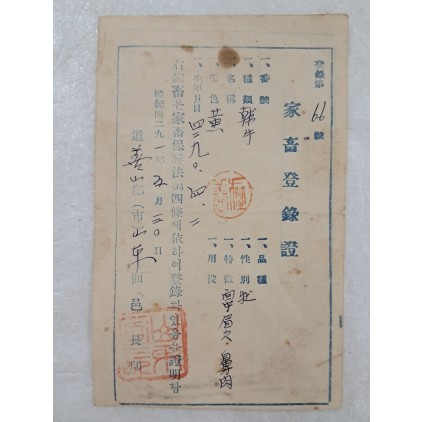 登錄第 66 號
家畜登錄證
一、番號
一、品種
一、種類 韓牛
一、性別 牝
一、名稱
一、特徵
一、毛色 黃
一、用役
一、生年月日 四二九〇.四.二
右家畜를家畜保護法第四條에依하여登錄하였음을證明함
檀紀四二九一年 五月 三〇日
道 善山郡(市)山東面、邑長印